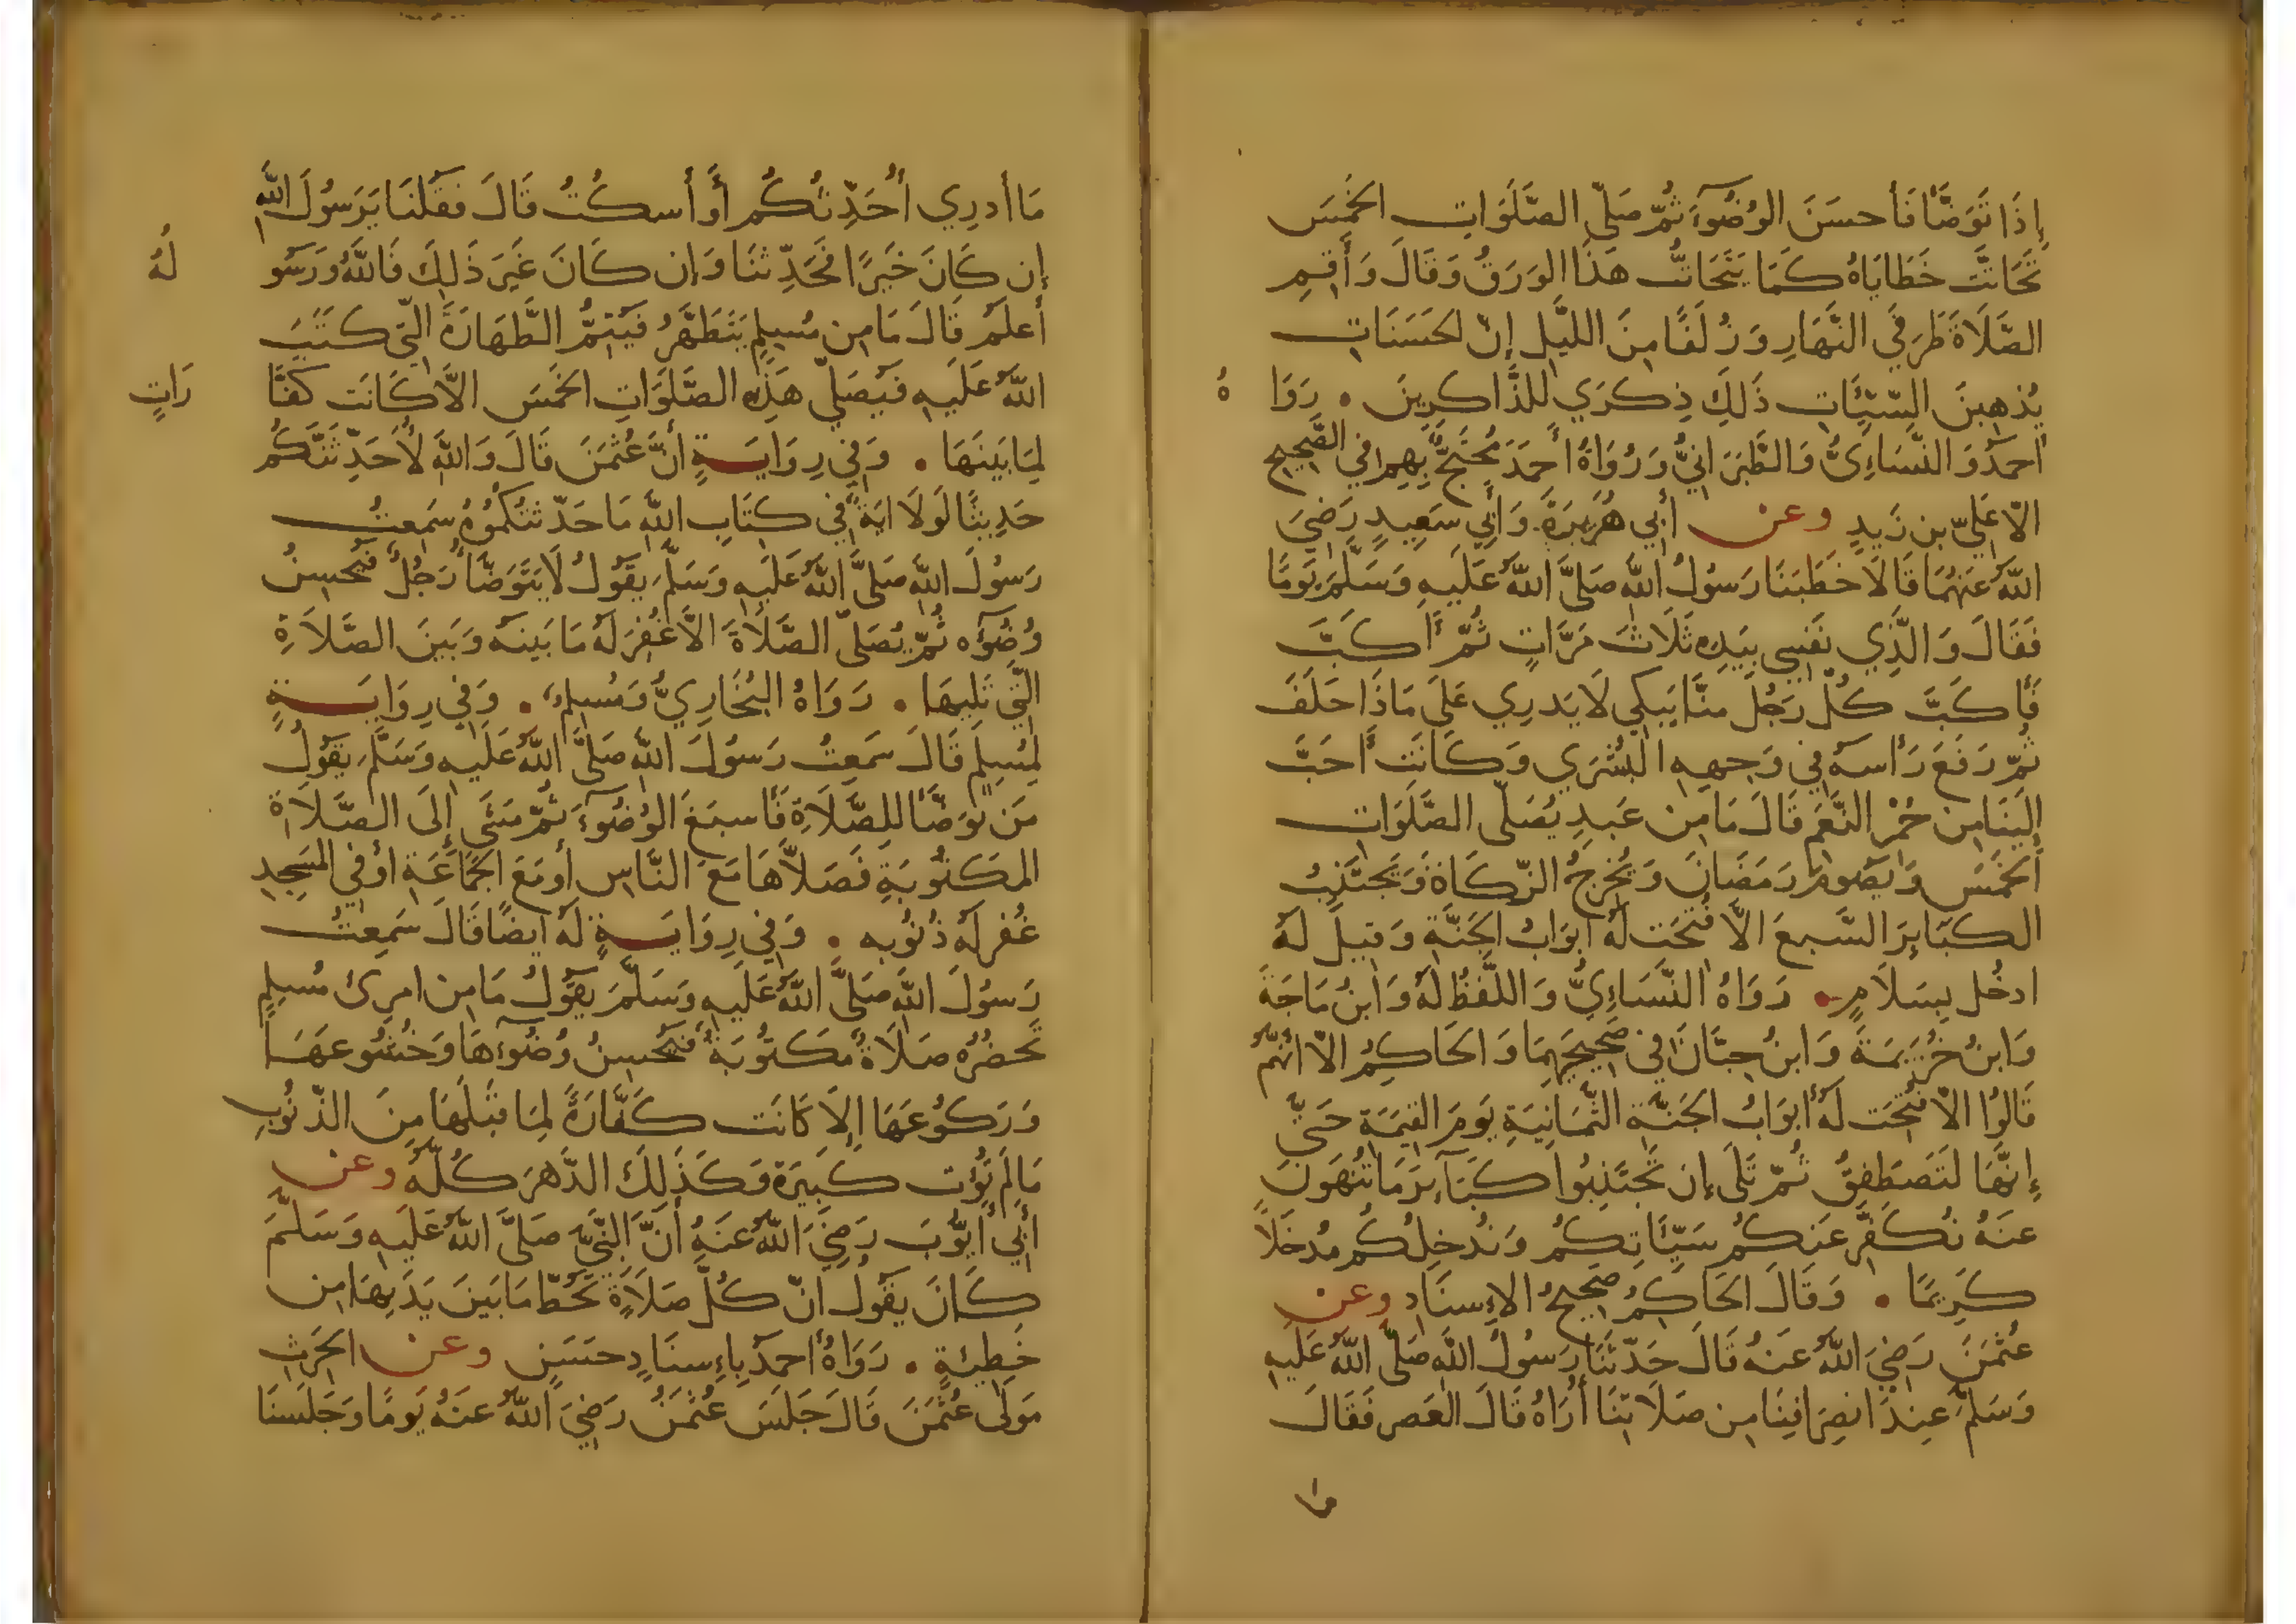 إِذَا تَوَضَّأَ فَأَحسَنَ الوُضُوٓءَ ثُمَّ صَلَّى الصَّلَوَاتِ الخَمسَ
تَحَاتَّت خَطَايَاهُ كَمَا يَتَحَاتُّ هَذَا الوَرَقُ وَقَالَ وَأَقِمِ
الصَّلَاةَ طَرَفَيِ النَّهَارِ وَزُلَفًا مِنَ اللَّيلِ إِنَّ الحَسَنَاتِ
يُذهِبنَ السَّيِّئَاتِ ذَلِكَ ذِكرَي لِلذَّاكِرِينَ . رَوَا هُ
أَحمَدُ وَالنَّسَاءِيُّ وَالطَّبَرَانِيُّ وَرُوَاةُ أَحمَدَ مُحتَجٌّ بِهِم فِي الصَّحِيحِ
الَّا عَلِيّ بن زَيدٍ وعن أَبِي هُرَيرَةَ وَأَبِي سَعِيدٍ رَضِيَ
اللَّهُ عَنهُمَا قَالَا خَطَبَنَا رَسُولُ اللَّهِ صَلَّى اللَّهُ عَلَيهِ وَسَلَّمَ يَومًا
فَقَالَ وَالَّذِي نَفسِي بِيَدِهِ ثَلَاثَ مَرَّاتٍ ثُمَّ أَكَبَّ
فَأَكَبَّ كُلُّ رَجُلٍ مِنَّا يَبكِي لَا يَدرِي عَلَى مَاذَا حَلَفَ
ثُمَّ رَفَعَ رَأسَهُ فِي وَجهِهِ البُشرَي وَكَانَت أَحَبَّ
إِلَينَا مِن حُمْرِ النَّعَمِ قَالَ مَا مِن عَبدٍ يُصَلِّى الصَّلَوَاتِ
الخَمسَ وَيَصُومُ رَمَضَانَ وَيُخرِجُ الزَّكَاةَ وَيَجتَنِبُ
الكَبَايِرَ السَّبعَ الَّا فُتِحَت لَهُ أَبوَابُ الجَنَّةِ وَقِيلَ لَهُ
ادخُل بِسَلَامٍ . رَوَاهُ النَّسَاءِيُّ وَاللَّفظُ لَهُ وَابنُ مَاجَةَ
وَابنُ خُزَيمَةَ وَابنُ حِبَّانَ فِي صَحِيحَيهِمَا وَالحَاكِمُ الَّا أَنَّهُم
قَالُوا الَّا فُتِحَت لَهُ أَبوَابُ الجَنَّةِ الثَّمَانِيَةِ يَومَ القِيَمَةِ حَتَّى
إِنَّهَا لَتَصطَفِقُ ثُمَّ تَلَى إِن تَجتَنِبُوا كَبَآئِرَ مَا تُنهَونَ
عَنهُ نُكَفِّر عَنكُم سَيِّئَاتِكُم وَنُدخِلكُم مُدخَلًا
كَرِيمًا . وَقَالَ الحَاكِمُ صَحِيحُ الإِسنَادِ وعن
عُثمَنَ رَضِيَ اللَّهُ عَنهُ قَالَ حَدَّثَنَا رَسُولُ اللَّهِ صَلَّى اللَّهُ عَلَيهِ
وَسَلَّمَ عِندَ انصِرَافِنَا مِن صَلَاتِنَا أُرَاهُ قَالَ العَصرِ فَقَالَ
مَا
مَا أَدرِي أُحَدِّثُكُم أَو أَسكُتُ قَالَ فَقُلنَا يَرَسُولَ اللَّهِ
إِن كَانَ خَيرًا فَحَدِّثنَا وَإِن كَانَ غَيرَ ذَلِكَ فَاللَّهُ وَرَسُو لُهُ
أَعلَمُ قَالَ مَا مِن مُسلِمٍ يَتَطَهَّرُ فَيُتِمُّ الطَّهَارَةَ الَّتِي كَتَبَ
اللَّهُ عَلَيهِ فَيُصَلِّي هَذِهِ الصَّلَوَاتِ الخَمسَ الَّا كَانَت كَفَّا رَاتٍ
لِمَا بَينَهَا . وَفِي رِوَايَةٍ أَنَّ عُثمَنَ قَالَ وَاللَّهِ لَأُحَدِّثَنَّكُم
حَدِيثًا لَولَا ايَةٌ فِي كِتَابِ اللَّهِ مَا حَدَّثتُكُمُوهُ سَمِعتُ
رَسُولَ اللَّهِ صَلَّى اللَّهُ عَلَيهِ وَسَلَّمَ يَقُولُ لَا يَتَوَضَّأُ رَجُلٌ فَيُحسِنُ
وُضُوٓءَه ثُمَّ يُصَلِّي الصَّلَاةَ الَّا غُفِرَ لَهُ مَا بَينَه وَبَينَ الصَّلَاةِ
الَّتِي تَلِيهَا . رَوَاهُ البُخَارِيُّ وَمُسلِمٌ . وَفِي رِوَايَةٍ
لِمُسلِمٍ قَالَ سَمِعتُ رَسُولَ اللَّهِ صَلَّى اللَّهُ عَلَيهِ وَسَلَّمَ يَقُولُ
مَن تَوَضَّأَ لِلصَّلَاةِ فَأَسبَغَ الوُضُوٓءَ ثُمَّ مَشَى إِلَى الصَّلَاةِ
المَكتُوبَةِ فَصَلَّاهَا مَعَ النَّاسِ أَو مَعَ الجَمَاعَةِ أَو فِي المَسجِدِ
غُفِر لَهُ ذُنُوبه . وَفِي رِوَايَةٍ لَهُ أَيضًا قَالَ سَمِعتُ
رَسُولَ اللَّهِ صَلَّى اللَّهُ عَلَيهِ وَسَلَّمَ يَقُولُ مَا مِن امرِئ مُسلِمٍ
تَحضُرُهُ صَلَاةٌ مَكتُوبَةٌ فَيُحسِنُ وُضُوٓءَهَا وَخُشُوعَهَا
وَرَكُوعَهَا إِلَّا كَانَت كَفَّارَةً لِمَا قَبلَهَا مِنَ الذُّنُوبِ
مَا لَم تُؤت كَبِيرَة وَكَذَلِكَ الدَّهرَ كُلَّهُ وعن
أَبِي أَيُّوبَ رَضِيَ اللَّهُ عَنهُ أَنَّ النَّبِيَّ صَلَّى اللَّهُ عَلَيهِ وَسَلَّمَ
كَانَ يَقُولُ انَّ كُلَّ صَلَاةٍ تَحُطّ مَا بَينَ يَدَيهَا مِن
خَطِيئَةٍ . رَوَاهُ أَحمَدُ بِإِسنَادٍ حَسَنٍ وعن الحَرِثِ
مَولَى عُثمَنَ قَالَ جَلَسَ عُثمَنُ رَضِيَ اللَّهُ عَنهُ يَومًا وَجَلَسنَا